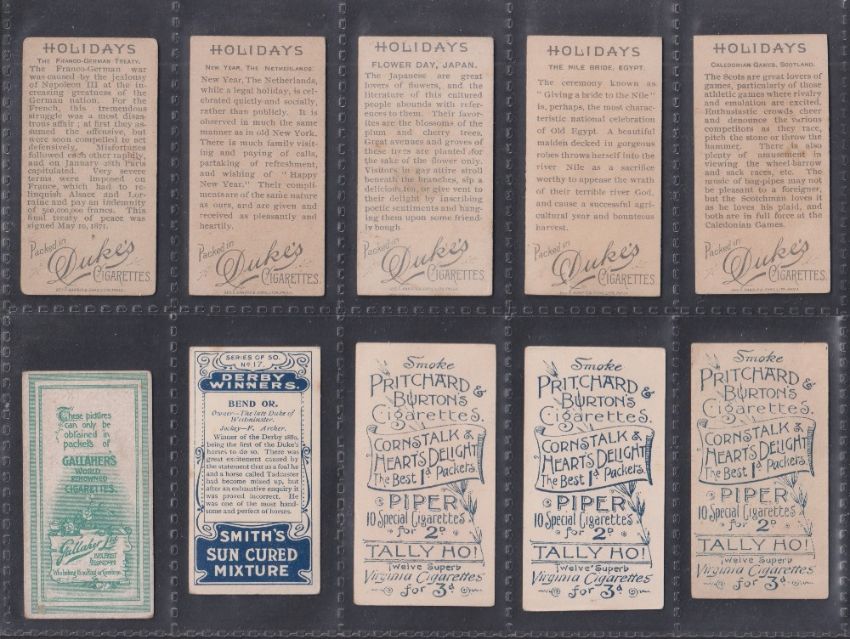 HOLIDAYS
THE FRANCO-GERMAN TREATY.
The Franco-German war
was caused by the jealousy
of Napoleon III at the in-
creasing greatness of the
German nation. For the
French, this tremendous
struggle was a most disas-
trous affair; at first they as-
sumed the offensive, but
were soon compelled to act
defensively. Misfortunes
followed each other rapidly,
and on January 28th Paris
capitulated. Very severe
terms were imposed on
France, which had to re-
linquish Alsace and Lor-
raine and pay an indemnity
of 500,000,000 francs. This
final treaty of peace was
signed May 10, 1871.
Packed in
Duke's
CIGARETTES.
HOLIDAYS
NEW YEAR, THE NETHERLANDS.
New Year, The Netherlands,
while a legal holiday, is cel-
ebrated quietly and socially,
rather than publicly. It is
observed in much the same
manner as in old New York.
There is much family visit-
ing and paying of calls,
partaking of refreshment,
and wishing of "Happy
New Year." Their compli-
ments are of the same nature
as ours, and are given and
received as pleasantly and
heartily.
Packed in
Duke's
CIGARETTES.
HOLIDAYS
FLOWER DAY, JAPAN.
The Japanese are great
lovers of flowers, and the
literature of this cultured
people abounds with refer-
ences to them. Their favor-
ites are the blossoms of the
plum and cherry trees.
Great avenues and groves of
these trees are planted for
the sake of the flower only.
Visitors in gay attire stroll
beneath the branches, sip a
delicious tea, or give vent to
their delight by inscribing
poetic sentiments and hang-
ing them upon some friend-
ly bough.
Packed in
Duke's
CIGARETTES.
HOLIDAYS
THE NILE BRIDE, EGYPT.
The ceremony known as
"Giving a bride to the Nile"
is, perhaps, the most charac-
teristic national celebration
of Old Egypt. A beautiful
maiden decked in gorgeous
robes throws herself into the
river Nile as a sacrifice
worthy to appease the wrath
of their terrible river God,
and cause a successful agri-
cultural year and bounteous
harvest.
Packed in
Duke's
CIGARETTES.
HOLIDAYS
CALEDONIAN GAMES, SCOTLAND.
The Scots are great lovers of
games, particularly of those
athletic games where rivalry
and emulation are excited.
Enthusiastic crowds cheer
and denounce the various
competitors as they race,
pitch the stone or throw the
hammer. There is also
plenty of amusement in
viewing the wheel-barrow
and sack races, etc. The
music of bag-pipes may not
be pleasant to a foreigner,
but the Scotchman loves it
as he loves his plaid, and
both are in full force at the
Caledonian Games.
Packed in
Duke's
CIGARETTES.
These pictures
can only be
obtained in
packets of
GALLAHER'S
WORLD
RENOWNED
CIGARETTES.
Gallaher Ltd
BELFAST
& LONDON
SERIES OF 50.
No 17.
DERBY
WINNERS.
BEND OR.
Owner—The late Duke of
Westminster.
Jockey—F. Archer.
Winner of the Derby 1880,
being the first of the Duke's
horses to do so. There was
great excitement caused by
the statement that as a foal he
and a horse called Tadcaster
had become mixed up, but
after an exhaustive enquiry it
was proved incorrect. He
was one of the most hand-
some and perfect of horses.
SMITH'S
SUN CURED
MIXTURE
Smoke
PRITCHARD &
BURTON'S
Cigarettes.
CORNSTALK &
HEART'S DELIGHT
The Best 1d Packets.
PIPER
10 Special Cigarettes
for 2D
TALLY HO!
Twelve Superb
Virginia Cigarettes
for 3d
Smoke
PRITCHARD &
BURTON'S
Cigarettes.
CORNSTALK &
HEART'S DELIGHT
The Best 1d Packets.
PIPER
10 Special Cigarettes
for 2D
TALLY HO!
Twelve Superb
Virginia Cigarettes
for 3d
Smoke
PRITCHARD &
BURTON'S
Cigarettes.
CORNSTALK &
HEART'S DELIGHT
The Best 1d Packets.
PIPER
10 Special Cigarettes
for 2D
TALLY HO!
Twelve Superb
Virginia Cigarettes
for 3d